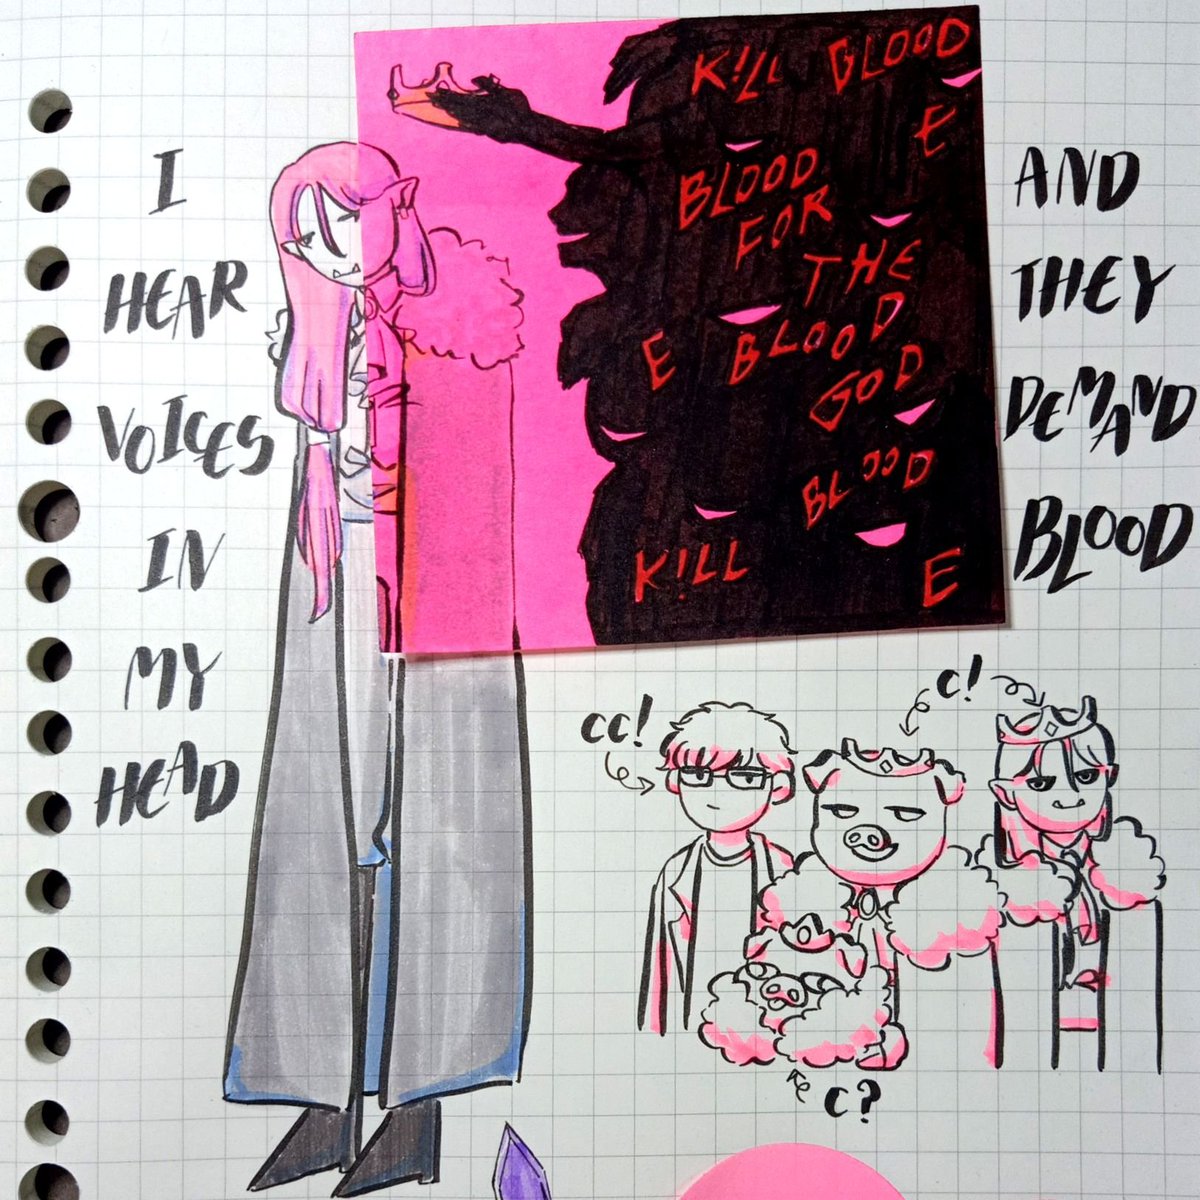 I
HEAR
VOICES
IN
MY
HEAD
K!LL BLOOD
E
BLOOD
FOR
THE
E BLOOD
GOD
BLOOD
K!LL
E
AND
THEY
DEMAND
BLOOD
cc!
c!
c?